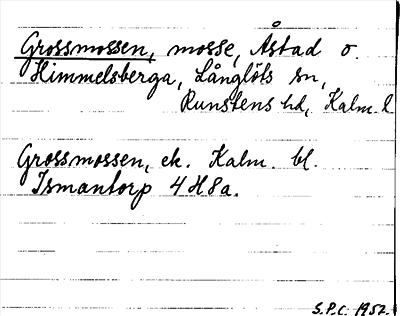 Grossmossen, mosse, Åstad o.
Himmelsberga, Långlöts sn,
Runstens hd, Kalm. l
Grossmossen, ek. Kalm. bl.
Ismantorp 4H8a.
S.P.C. 1957.